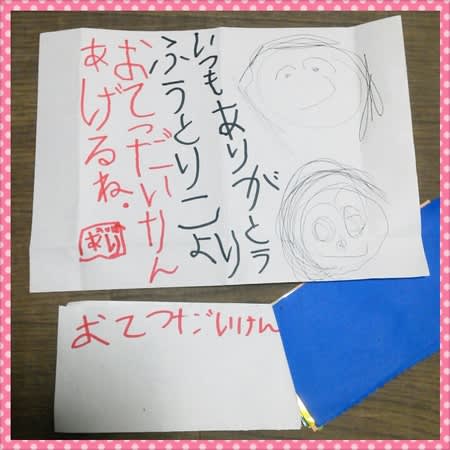 いつもありがとう
ふうとりこより
おてつだいけん
あげるね。
おてつだいけん